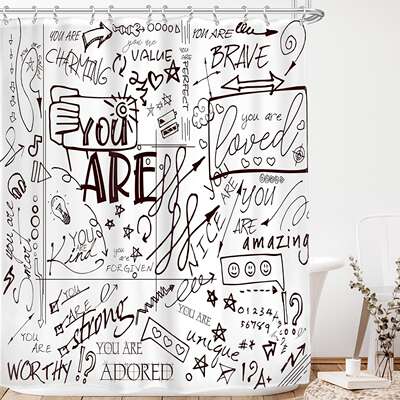 YOU ARE
CHARMING
you me
VALUE
YOU ARE
BRAVE
YOU ARE
PERFECT
YOU
ARE
you are
loved
YOU ARE
NICE
YOU
ARE
amazing
you are
smart
YOU
ARE
Kind
you
are
FORGIVEN
YOU
ARE
strong
YOU
ARE
WORTHY !?
YOU ARE
ADORED
YOU
ARE
unique
01234
56789
!?
#A+